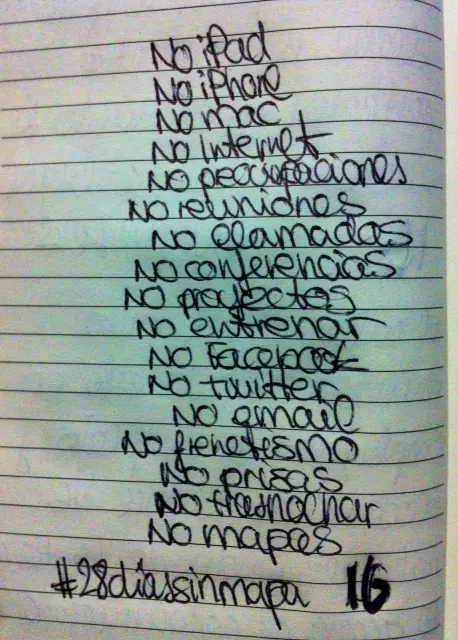 No iPad
No iPhone
No mac
No Internet
No peocupaciones
No reuniones
No llamadas
No conferencias
No proyectos
No entrenar
No Facebook
No twitter
No gmail
No frenetismo
No prisas
No trasnochar
No mapas
#28díassinmapa 16